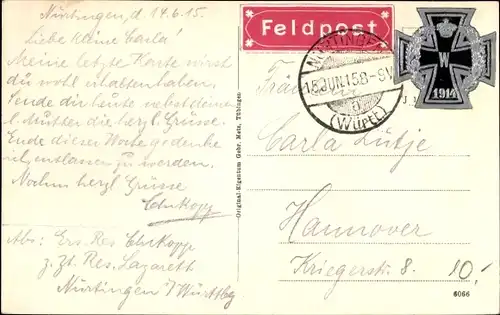 Nürtingen, d. 14.6.15.
Liebe kleine Carla!
Meine letzte Karte wirst
du wohl erhalten haben.
Sende dir heute nebst deiner
l. Mutter die herzl. Grüsse.
Ende dieser Woche gedenke
entlassen zu werden.
Nochm. herzl. Grüsse
Abs: Ers. Res.
z. Zt. Res. Lazarett
Nürtingen a/ Württbg
Original-Eigentum Gebr. Metz, Tübingen
Feldpost
NÜRTINGEN
15.JUN.15 8-9V
(Württ.)
W
1914
Carla Lütje
Hannover
Kriegerstr. 8.
10,-
6066